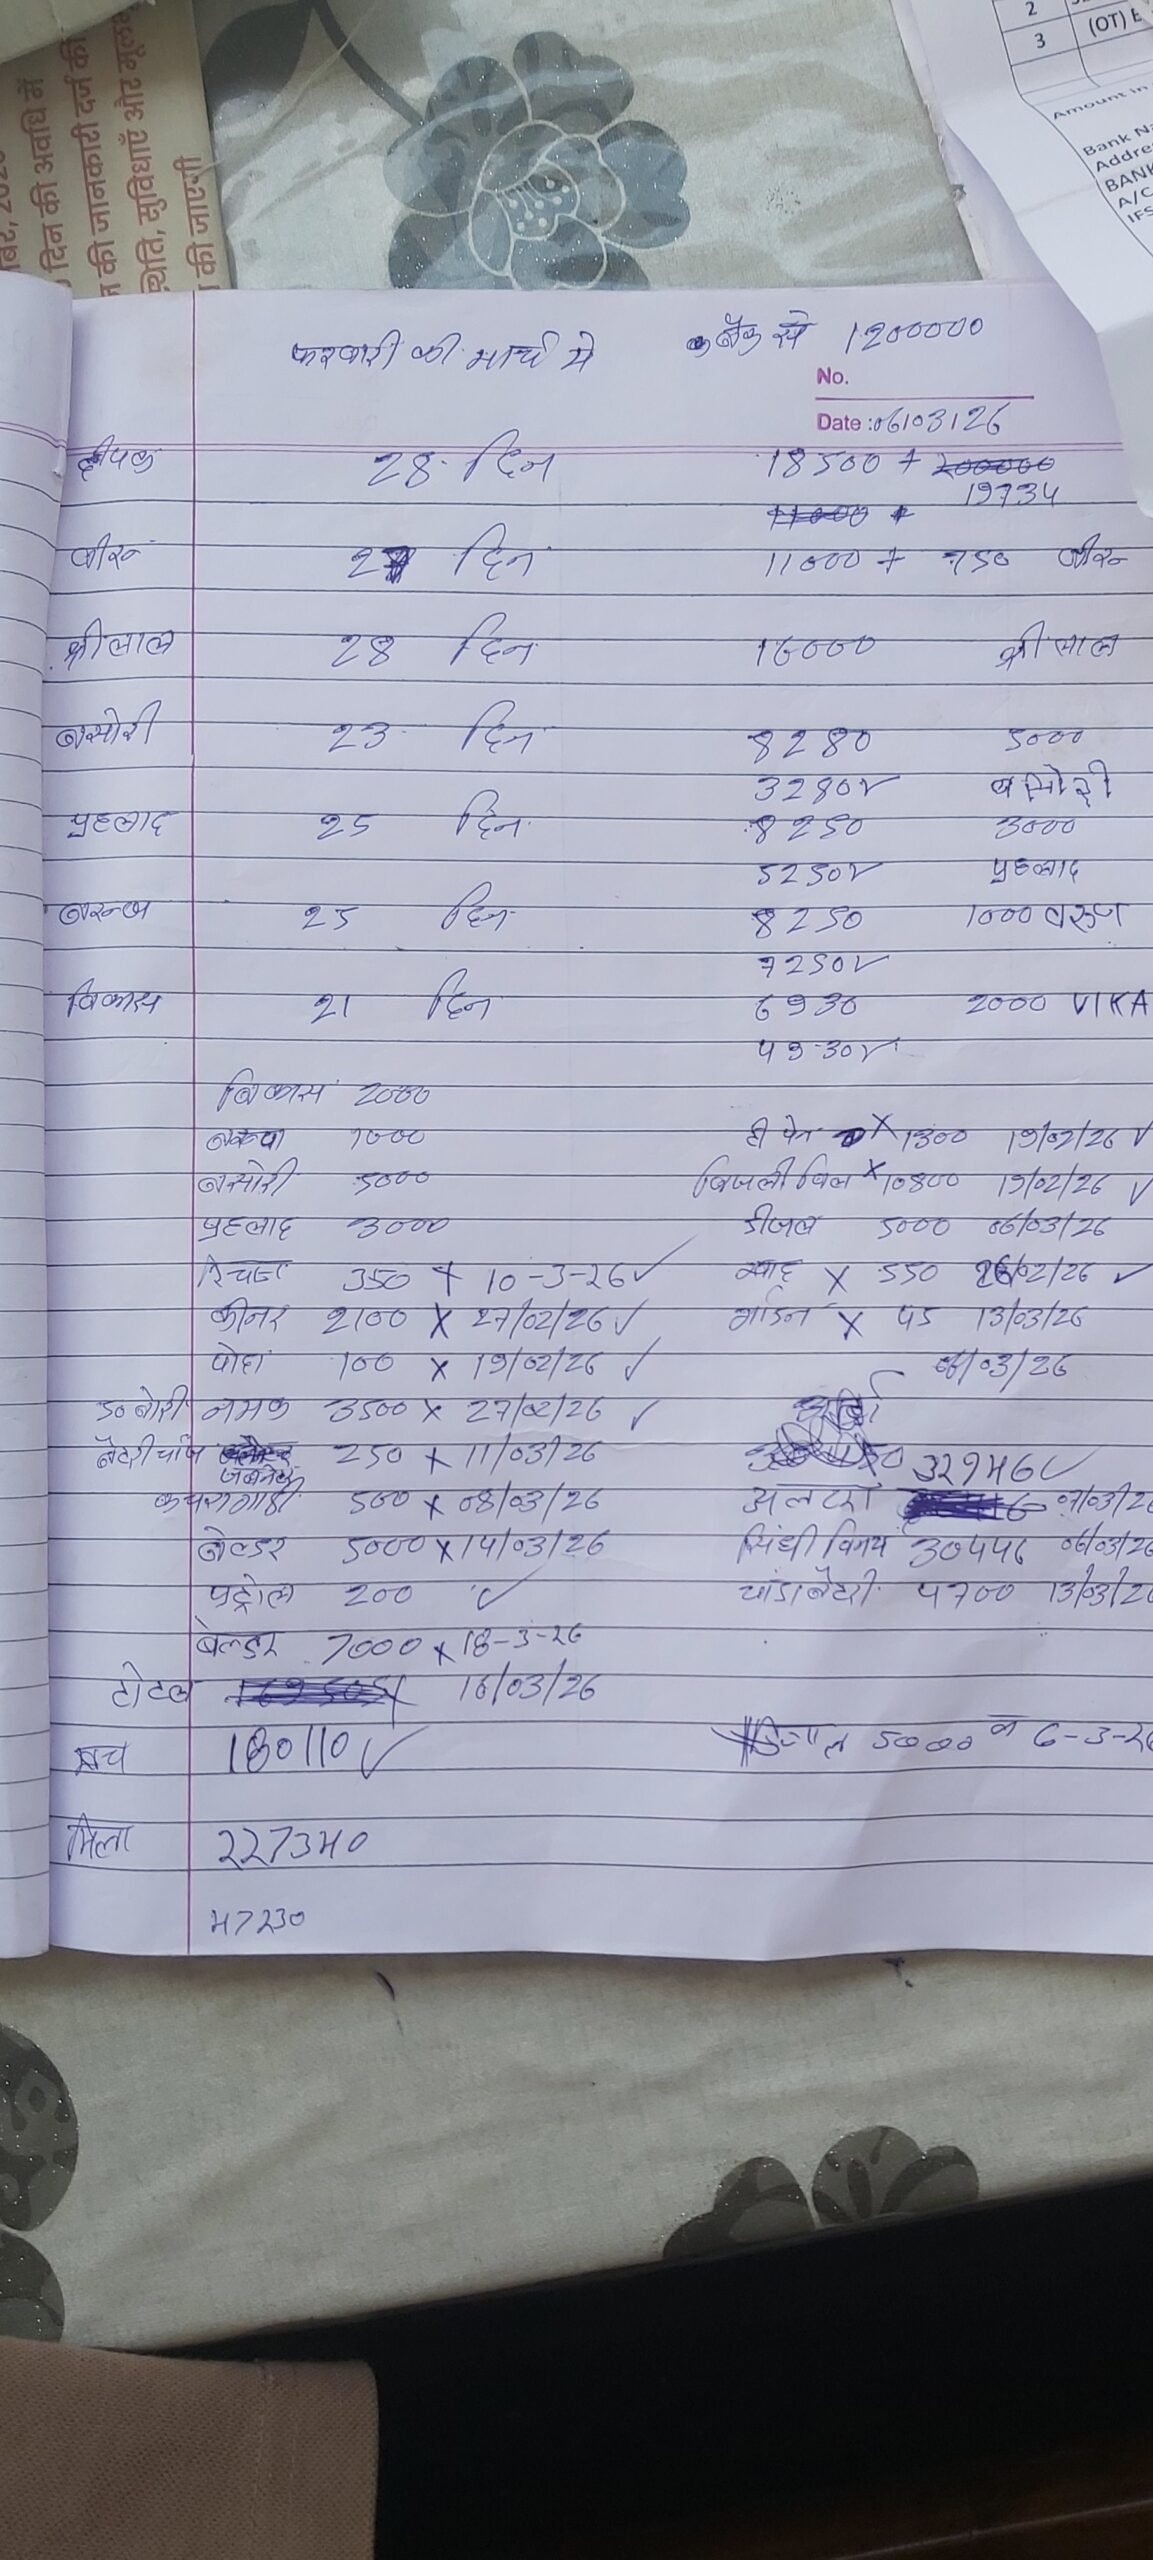 दिन की अवधि में
की जानकारी दर्ज की
स्थिति, सुविधाएँ और मूल
की जाएगी
2
3 (OT) E
Amount in
Bank Na
Addre
BANK
A/C
IFS
फरवारी की मार्च मे बैंक से 1200000
No.
Date : 06/03/26
दीपक 28 दिन 18500 +
19734
वीरु 27 दिन 11000 + 750 वीरु
श्रीलाल 28 दिन 16000 श्रीलाल
बसोरी 23 दिन 8280 5000
3280 ✓ बसोरी
प्रहलाद 25 दिन 8250 3000
5250 ✓ प्रहलाद
25 दिन 8250 1000 वरुण
7250 ✓
विकास 21 दिन 6930 2000 VIKA
4930 ✓
विकास 2000
1000 × 1300 19/02/26 ✓
बसोरी 5000 बिजली बिल × 10800 19/02/26 ✓
प्रहलाद 3000 डीजल 5000 06/03/26
रिचार्ज 350 + 10-3-26 ✓ खाद × 550 26/02/26 ✓
2100 × 27/02/26 ✓ गार्डन × 13/03/26
पोहा 100 × 19/02/26 ✓ 06/03/26
50 बोरी नमक 3500 × 27/02/26 ✓
बैटरी चार्ज जनरेटर 250 × 11/03/26 32946 ✓
कचरा गाडी 500 × 08/03/26 अलटरा 07/03/26
वेल्डर 5000 × 14/03/26 सिंधी विनय 30446 06/03/26
पट्रोल 200 ✓ चांडा बैटरी 4700 13/03/2
वेल्डर 7000 × 18-3-26
टोटल 16/03/26
खर्च 180110 ✓ 5000 6-3-26
मिला 227340
47230